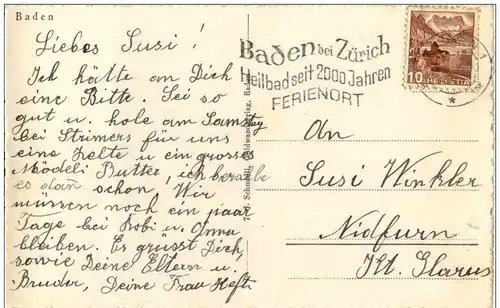 Baden
Liebes Susi!
Ich hätte an Dich
eine Bitte. Sei so
gut u. hole am Samstag
bei Strimers für uns
eine Zelte u ein grosses
Mödeli Butter, ich bezahle
es dan schon Wir
müssen noch ein paar
Tage bei Robi u. Anna
bleiben. Es grüsst Dich,
sowie Deine Eltern u.
Bruder, Deine Frau Hefti
Baden bei Zürich
Heilbad seit 2000 Jahren
FERIENORT
10 HELVETIA
An
Susi Winkler
Nidfurn
Kt. Glarus